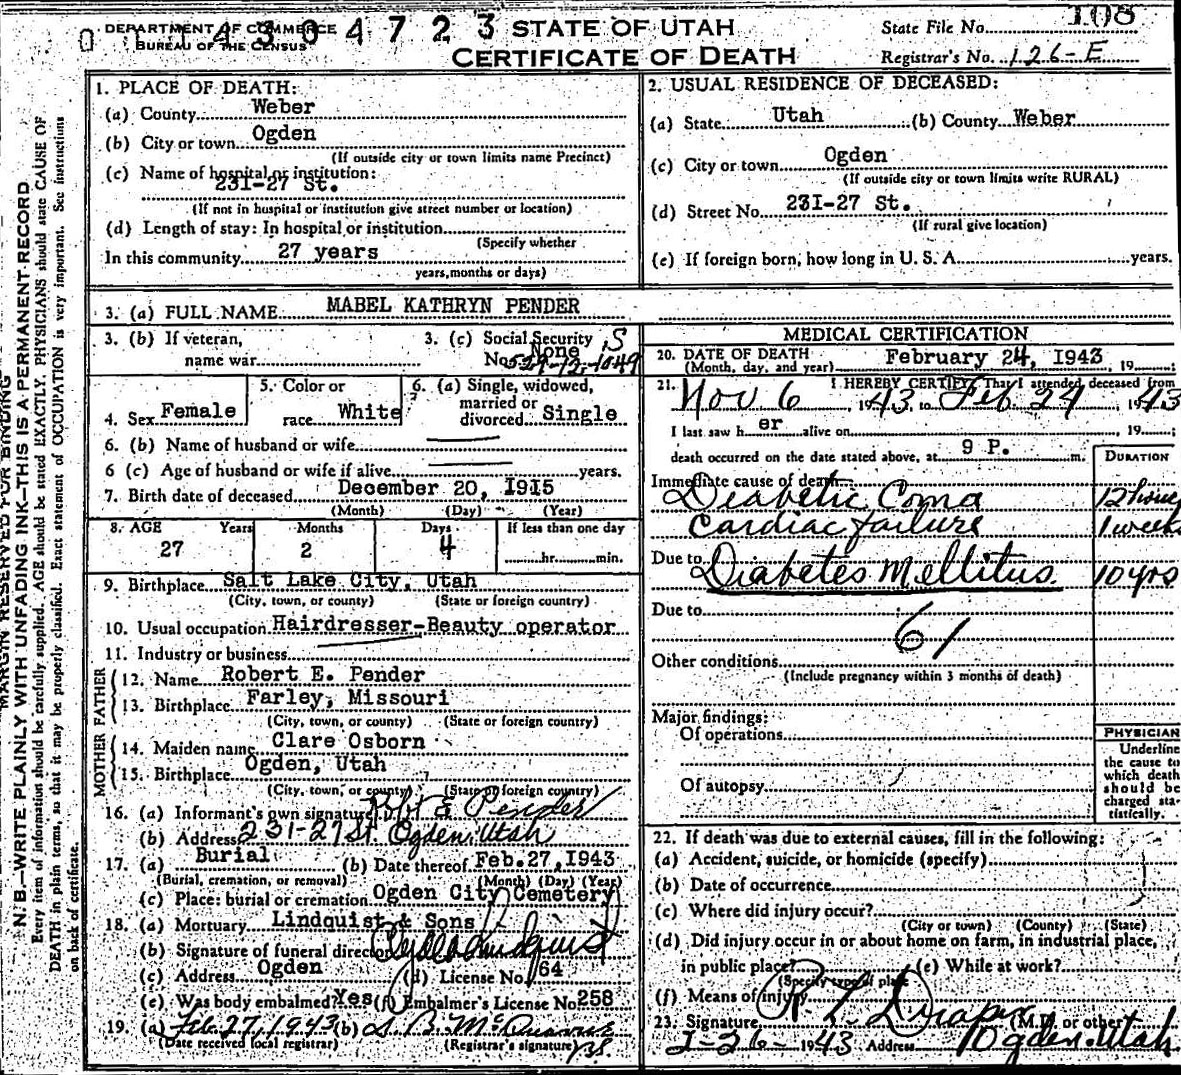 DEPARTMENT OF COMMERCE
BUREAU OF THE CENSUS
4304723
STATE OF UTAH
CERTIFICATE OF DEATH
State File No. 108
Registrar's No. 126-E
MARGIN RESERVED FOR BINDING
N. B.—WRITE PLAINLY WITH UNFADING INK—THIS IS A PERMANENT RECORD
Every item of information should be carefully supplied. AGE should be stated EXACTLY. PHYSICIANS should state CAUSE OF
DEATH in plain terms, so that it may be properly classified. Exact statement of OCCUPATION is very important. See instructions
on back of certificate.
1. PLACE OF DEATH:
(a) County Weber
(b) City or town Ogden
(If outside city or town limits name Precinct)
(c) Name of hospital or institution:
231-27 St.
(If not in hospital or institution give street number or location)
(d) Length of stay: In hospital or institution
(Specify whether
In this community 27 years
years, months or days)
2. USUAL RESIDENCE OF DECEASED:
(a) State Utah (b) County Weber
(c) City or town Ogden
(If outside city or town limits write RURAL)
(d) Street No. 231-27 St.
(If rural give location)
(e) If foreign born, how long in U. S. A. years.
3. (a) FULL NAME MABEL KATHRYN PENDER
3. (b) If veteran,
name war
3. (c) Social Security S
No. None
529-12-1049
4. Sex Female
5. Color or
race White
6. (a) Single, widowed,
married or
divorced Single
6. (b) Name of husband or wife
6 (c) Age of husband or wife if alive years.
7. Birth date of deceased December 20, 1915
(Month) (Day) (Year)
8. AGE Years Months Days If less than one day
27 2 4 hr. min.
9. Birthplace Salt Lake City, Utah
(City, town, or county) (State or foreign country)
10. Usual occupation Hairdresser-Beauty operator
11. Industry or business
FATHER
12. Name Robert E. Pender
13. Birthplace Farley, Missouri
(City, town, or county) (State or foreign country)
MOTHER
14. Maiden name Clare Osborn
15. Birthplace Ogden, Utah
(City, town, or county) (State or foreign country)
16. (a) Informant's own signature Robt E Pender
(b) Address 231-27 St. Ogden, Utah
17. (a) Burial (b) Date thereof Feb. 27, 1943
(Burial, cremation, or removal) (Month) (Day) (Year)
(c) Place: burial or cremation Ogden City Cemetery
18. (a) Mortuary Lindquist & Sons
(b) Signature of funeral director Lindquist
(c) Address Ogden (d) License No. 64
(e) Was body embalmed? Yes (f) Embalmer's License No. 258
19. (a) Feb. 27, 1943 (b)
(Date received local registrar) (Registrar's signature)
MEDICAL CERTIFICATION
20. DATE OF DEATH February 24, 1943, 19
(Month, day, and year)
21. I HEREBY CERTIFY, That I attended deceased from
Nov 6, 1943, to Feb 24, 1943
I last saw h er alive on , 19 ;
death occurred on the date stated above, at 9 P. m.
DURATION
Immediate cause of death
Diabetic Coma 12 hours
Cardiac failure 1 week
Due to Diabetes Mellitus 10 yrs
Due to
61
Other conditions
(Include pregnancy within 3 months of death)
Major findings:
Of operations
Of autopsy
PHYSICIAN
Underline
the cause to
which death
should be
charged sta-
tistically.
22. If death was due to external causes, fill in the following:
(a) Accident, suicide, or homicide (specify)
(b) Date of occurrence
(c) Where did injury occur?
(City or town) (County) (State)
(d) Did injury occur in or about home on farm, in industrial place,
in public place? (e) While at work?
(Specify type of place)
(f) Means of injury
23. Signature R. L. Draper (M.D. or other)
2-26-1943 Address Ogden, Utah